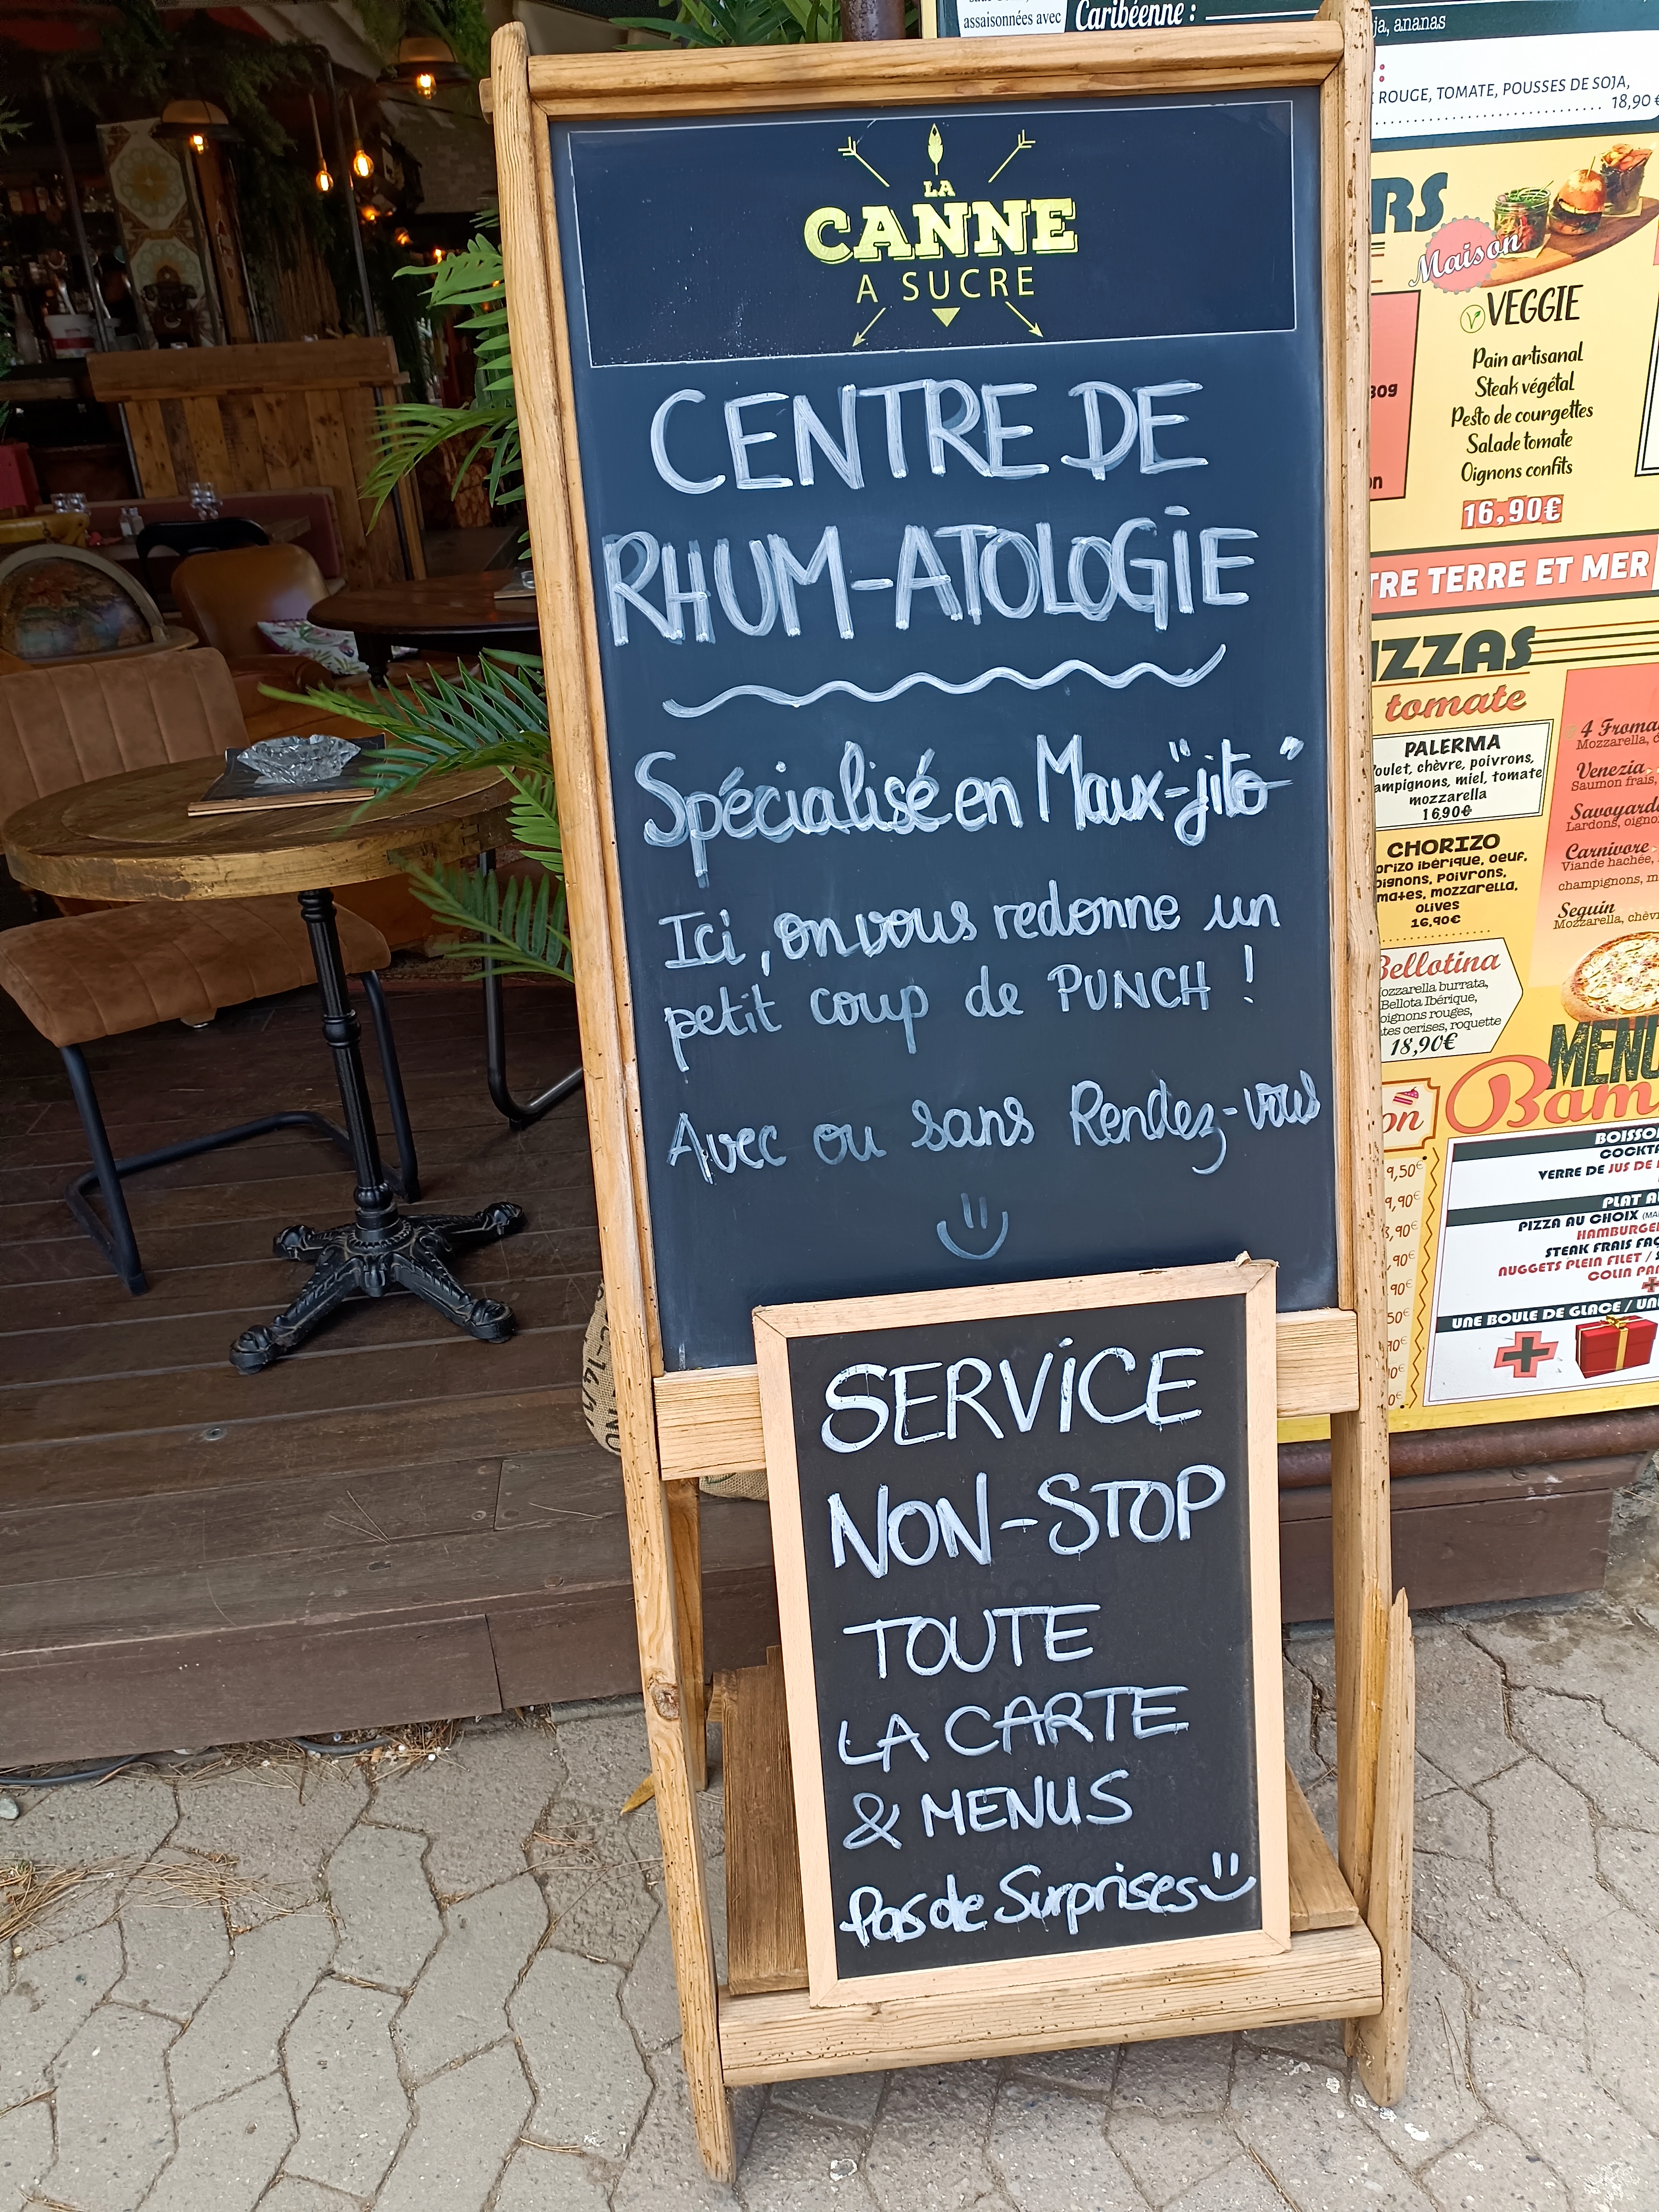 LA
CANNE
A SUCRE
CENTRE DE
RHUM-ATOLOGIE
Spécialisé en Maux-"jito"
Ici, on vous redonne un
petit coup de PUNCH !
Avec ou sans Rendez-vous
SERVICE
NON-STOP
TOUTE
LA CARTE
& MENUS
Pas de Surprises
assaisonnées avec
Caribéenne :
ja, ananas
ROUGE, TOMATE, POUSSES DE SOJA,
18,90 €
RS
Maison
VEGGIE
Pain artisanal
Steak végétal
Pesto de courgettes
Salade tomate
Oignons confits
16,90€
TRE TERRE ET MER
IZZAS
tomate
PALERMA
oulet, chèvre, poivrons,
ampignons, miel, tomate
mozzarella
16,90€
CHORIZO
orizo ibérique, oeuf,
pignons, poivrons,
mates, mozzarella,
olives
16,90€
Bellotina
ozzarella burrata,
Bellota Ibérique,
oignons rouges,
tes cerises, roquette
18,90€
4 Froma
Mozzarella, c
Venezia
Saumon frais,
Savoyard
Lardons, oigno
Carnivore
Viande hachée,
champignons, m
Seguin
Mozzarella, chèv
MENU
Bam
on
9,50€
9,90€
,90€
,90€
90€
50€
BOISSO
COCKTA
VERRE DE JUS DE
PLAT A
PIZZA AU CHOIX
HAMBURGE
STEAK FRAIS FAÇ
NUGGETS PLEIN FILET /
COLIN PA
UNE BOULE DE GLACE / UN